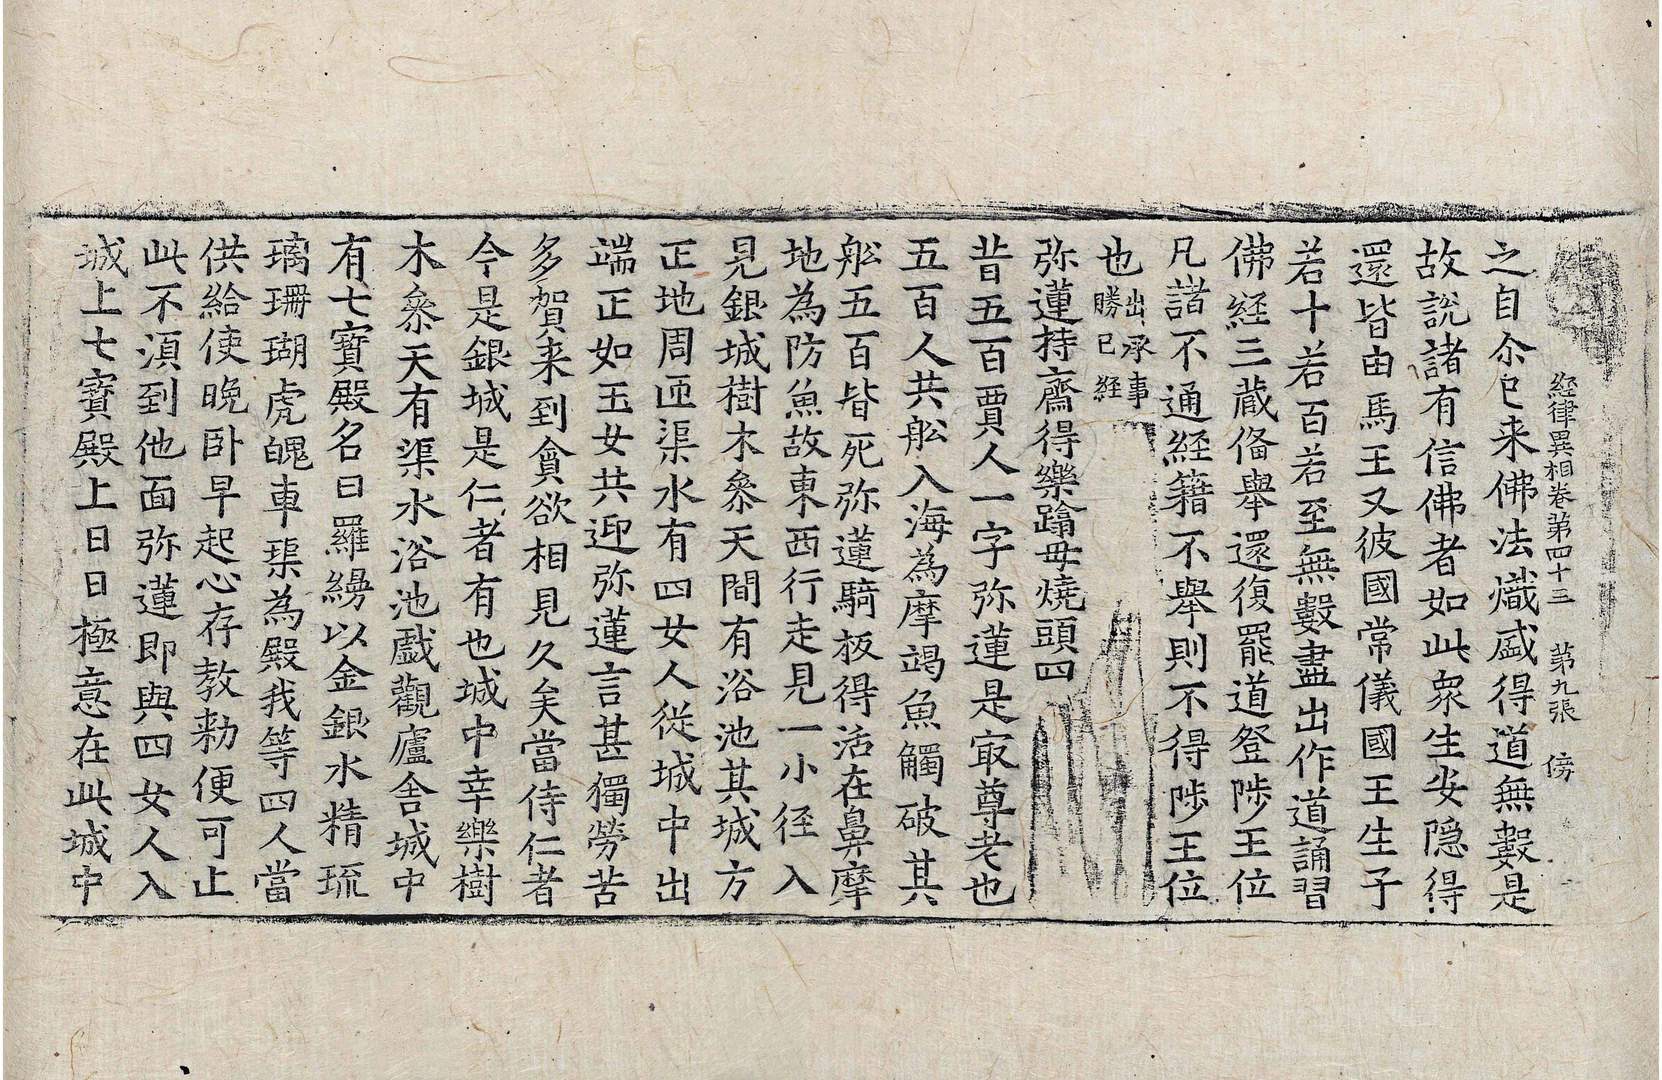 經律異相卷第四十三　第九張　傍
之自尒已来佛法熾盛得道無數是
故說諸有信佛者如此衆生安隱得
還皆由馬王又彼國常儀國王生子
若十若百若至無數盡出作道誦習
佛經三藏俻舉還復罷道登陟王位
凡諸不通經籍不舉則不得陟王位
也出承事
勝已經
弥蓮持齋得樂蹹母燒頭四
昔五百賈人一字弥蓮是㝡尊老也
五百人共舩入海為摩竭魚觸破其
舩五百皆死弥蓮騎板得活在鼻摩
地為防魚故東西行走見一小径入
見銀城樹木叅天間有浴池其城方
正地周匝渠水有四女人從城中出
端正如玉女共迎弥蓮言甚獨勞苦
多賀来到貪欲相見久矣當侍仁者
今是銀城是仁者有也城中幸樂樹
木叅天有渠水浴池戲觀廬舎城中
有七寶殿名曰羅縵以金銀水精琉
璃珊瑚虎魄車璖為殿我等四人當
供給使晚卧早起心存教勑便可止
此不湏到他面弥蓮即與四女人入
城上七寶殿上日日極意在此城中